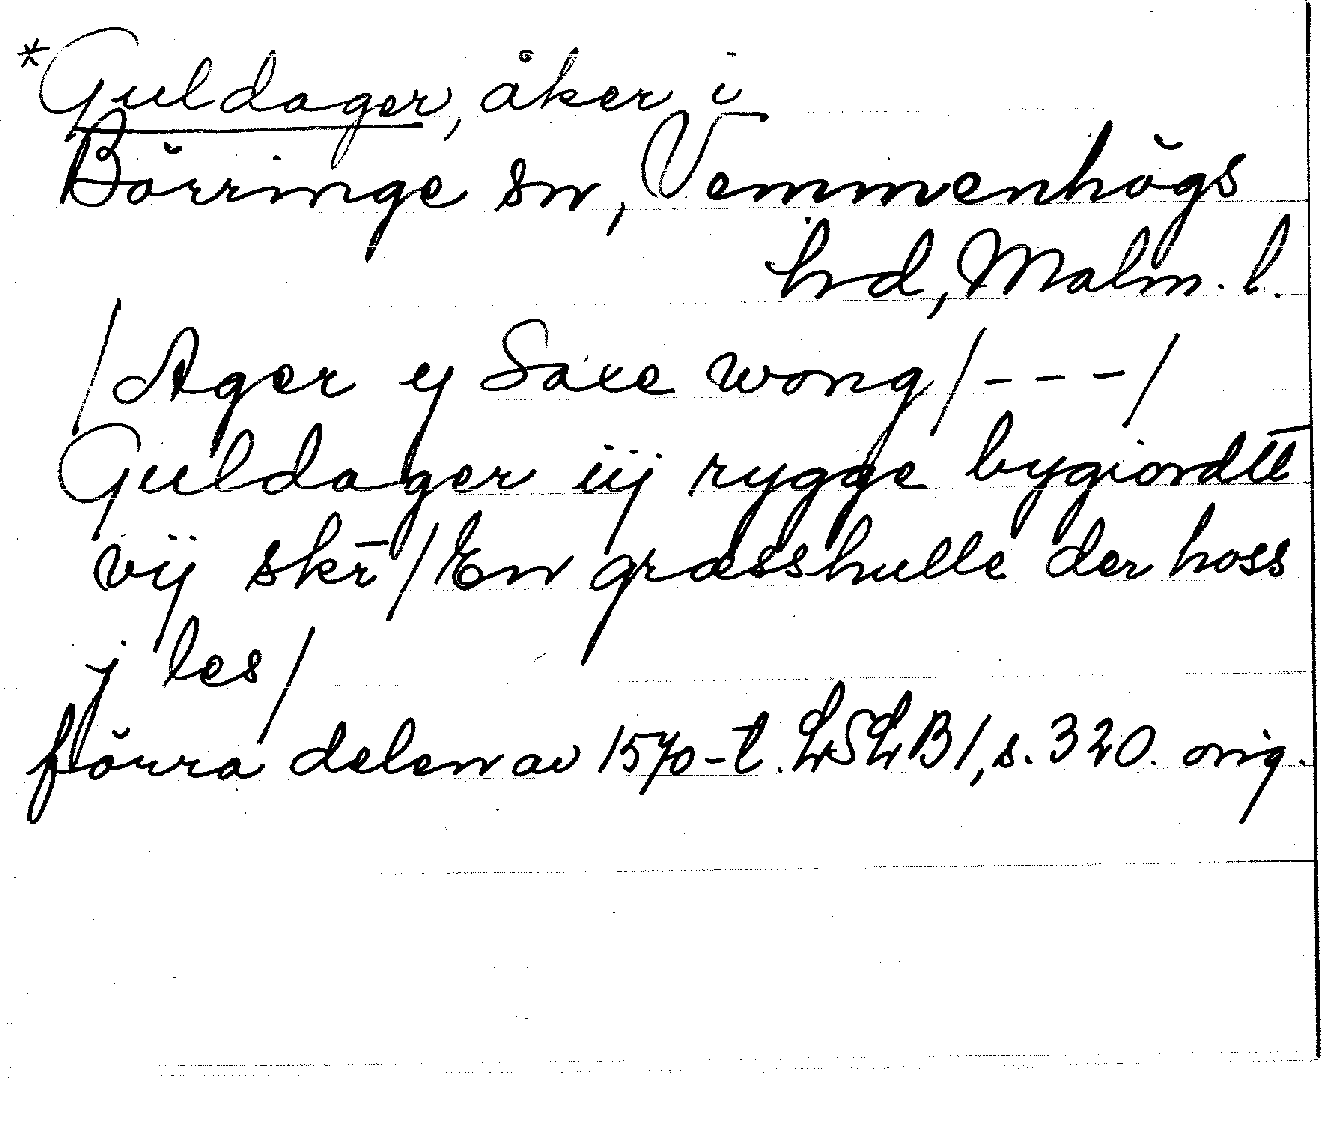 *Guldager, åker i
Börringe sn, Vemmenhögs
hrd, Malm. l.
/Ager y Saxe wong/---/
Guldager iij rygge bygiordtt
vij skr̄/En græsshulle der hoss
j les/
förra delen av 1570-t. LSLB1, s. 320. orig.